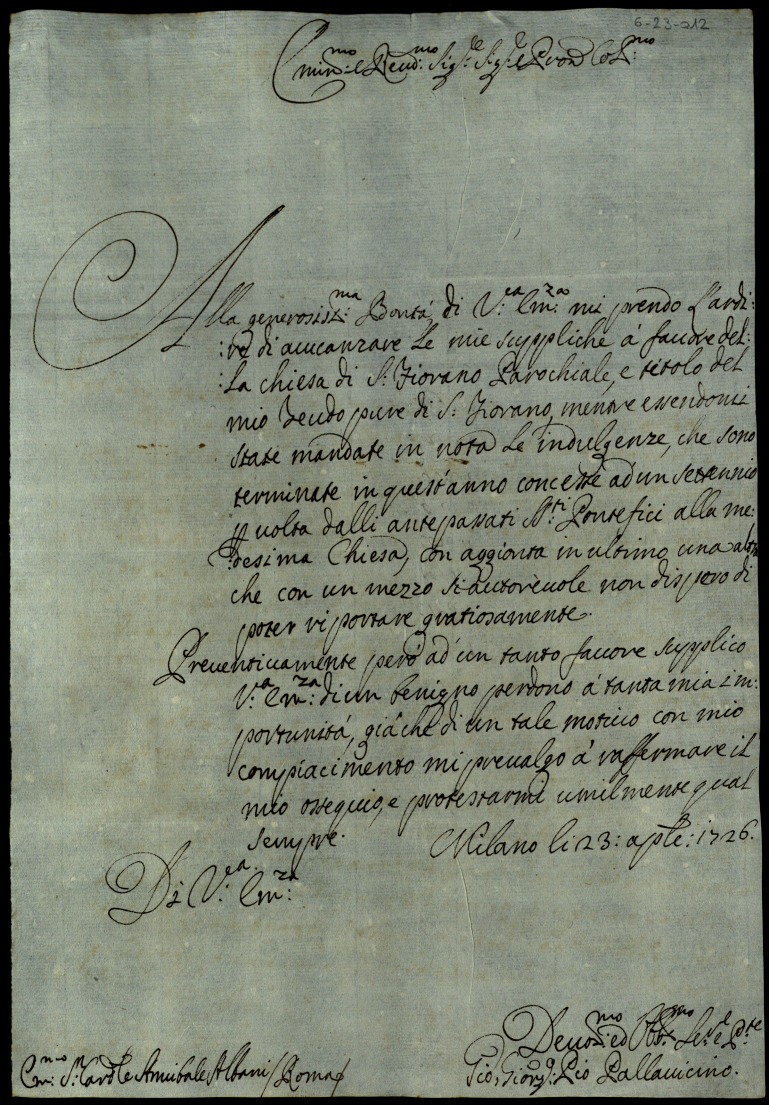 6-23-012
Emin:mo e Reud:mo Sig:re Sig:re e Pron Col:mo
Alla generosiss:ma Bontà di V:ea Em:za mi prendo l'ardi:
:re di auuanzare le mie suppliche à fauore del:
:la chiesa di S: Fiorano Parochiale, e titolo del
mio feudo pure di S: Fiorano, mentre essendomi
state mandate in nota le indulgenze, che sono
terminate in quest'anno concesse ad un settennio
p uolta dalli antepassati S:ti Pontefici alla me:
:desima Chiesa, con aggionta in ultimo una altra
che con un mezzo sì autoreuole non dispero di
poter riportare gratiosamente.
Preuentiuamente però ad un tanto fauore supplico
V:a Em:za di un benigno perdono à tanta mia im:
portunità, già che di un tale motiuo con mio
compiacimento mi preualgo à raffermare il
mio ossequio, e protestarmi umilmente qual
sempre.
Milano li 23: aple: 1726.
Di V:ea Em:za
Deuoti:mo ed Obb:mo Se:re
Gio: Giorg:o Pio Pallauicino.
Em:mo S:r Card:le Annibale Albani / Roma /